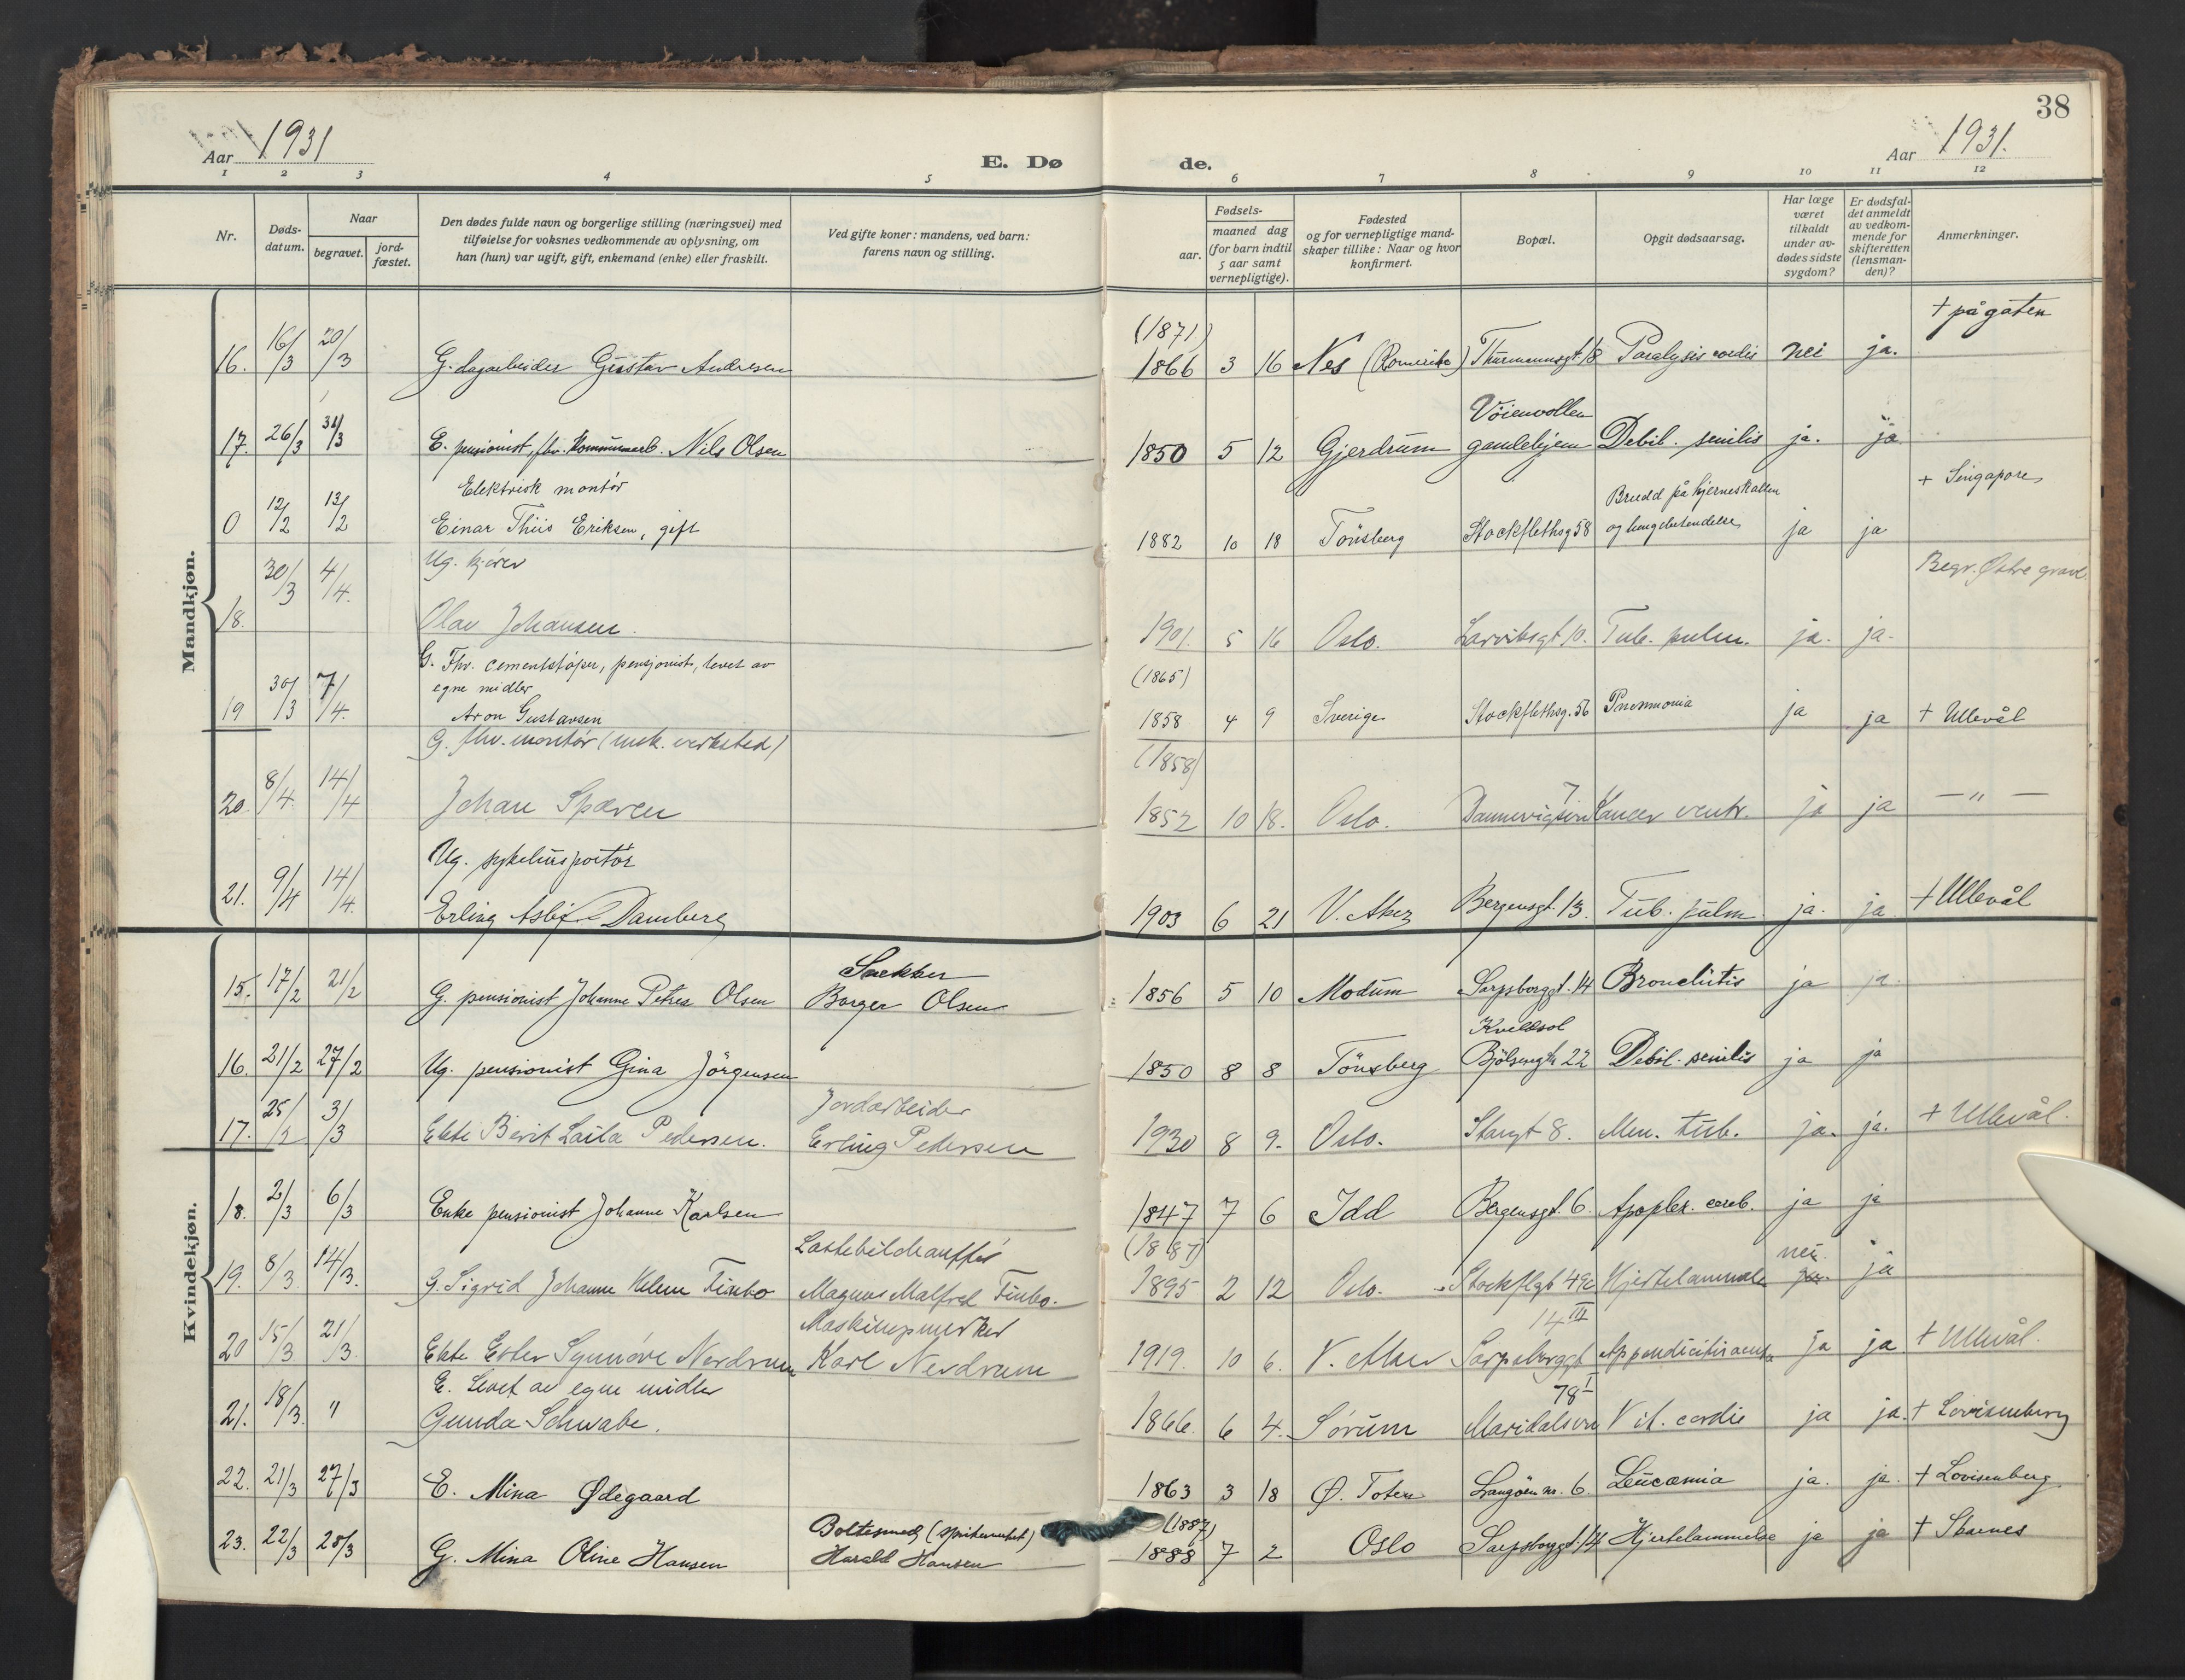 38
Aar 1931
E. Dø
de.
Aar 1931.
1 2 3 4 5 6 7 8 9 10 11 12
Nr.
Døds-
datum.
Naar
begravet.
jord-
fæstet.
Den dødes fulde navn og borgerlige stilling (næringsvei) med
tilføielse for voksnes vedkommende av oplysning, om
han (hun) var ugift, gift, enkemand (enke) eller fraskilt.
Ved gifte koner: mandens, ved barn:
farens navn og stilling.
Fødsels-
aar.
maaned dag
(for barn indtil
5 aar samt
vernepligtige).
Fødested
og for vernepligtige mand-
skaper tillike: Naar og hvor
konfirmert.
Bopæl.
Opgit dødsaarsag.
Har læge
været
tilkaldt
under av-
dødes sidste
sygdom?
Er dødsfal-
det anmeldt
av vedkom-
mende for
skifteretten
(lensman-
den)?
Anmerkninger.
Mandkjøn.
(1871) + på gaten
16. 16/3 20/3 G. dagarbeider Gustav Andresen 1866 3 16 Nes (Romerike) Thurmannsgt. 18 Paralysis cordis nei ja.
Vöienvollen
17. 26/3 31/3 E. pensionist, fhv. Kommunearb. Nils Olsen 1850 5 12 Gjerdrum gamlehjem Debil. senilis ja. ja
Elektrisk montör Brudd på hjerneskallen + Singapore
0 12/2 13/2 Einar Thiis Eriksen, gift 1882 10 18 Tönsberg Stockflethsg 58 og ja ja
30/3 4/4. Ug. kjörer Begr. Østre gravl.
18. Olav Johansen. 1901. 5 16 Oslo. Larviksgt 10. Tub. pulm. ja. ja.
G. Fhv. cementstöper, pensjonist, levet av
egne midler (1865)
19 30/3 7/4. Aron Gustavsen 1858 4 9 Sverige Stockflethsg. 56 Pneumonia ja ja + Ullevål
G. fhv. montör (mek. verksted) (1858)
20. 8/4. 14/4 Johan Spæren 1852 10 18. Oslo. Dannevigsvn 7 Cancer ventr. ja ja — " —
Ug. sykehusportör
21. 9/4 14/4. Erling Damberg 1903 6 21 V. Aker Bergensgt. 13. Tub. pulm. ja. ja + Ullevål
Kvindekjøn.
15. 17/2 21/2 G. pensionist Johanne Petrea Olsen Borger Olsen 1856 5 10 Modum Sarpsborggt. 14 Bronchitis ja ja.
Kveldsol
16. 21/2 27/2 Ug. pensionist Gina Jörgensen 1850 8 8 Tönsberg Bjölsengt. 22 Debil. senilis ja ja
Jordarbeider
17. 25/2 3/3 Ekte Berit Laila Pedersen. Erling Pedersen 1930 8 9. Oslo. Stangt 8. Men. tub. ja. ja. + Ullevål.
18. 2/3 6/3 Enke pensionist Johanne Karlsen 1847 7 6 Idd Bergensgt. 6. Apoplex. cereb. ja ja
Lastebilchauffør (1887) nei.
19. 8/3. 14/3. G. Sigrid Johanne Helene Finbo Magnus Malfred Finbo. 1895 2 12 Oslo. Stockflgt 49c Hjertelammelse ja. ja
14 III
20 15/3 21/3. Ekte Ester Synnöve Nerdrum Karl Nerdrum 1919. 10 6. V. Aker Sarpsborggt Appendicitis acuta ja ja + Ullevål.
E. Levet av egne midler 78 I
21. 18/3. " Gunda Schwabe. 1866. 6 4. Sörum Maridalsvn Vit. cordis ja ja. + Lovisenberg
22. 21/3 27/3 E. Mina Ødegaard 1863 3 18 Ø. Toten Langöen nr. 6. Leucæmia ja. ja. + Lovisenberg
Boltesmed (1887)
23. 22/3 28/3 G. Mina Oline Hansen Harald Hansen 1888 7 2 Oslo Sarpsborggt. 14 Hjertelammelse ja ja + Skarnes